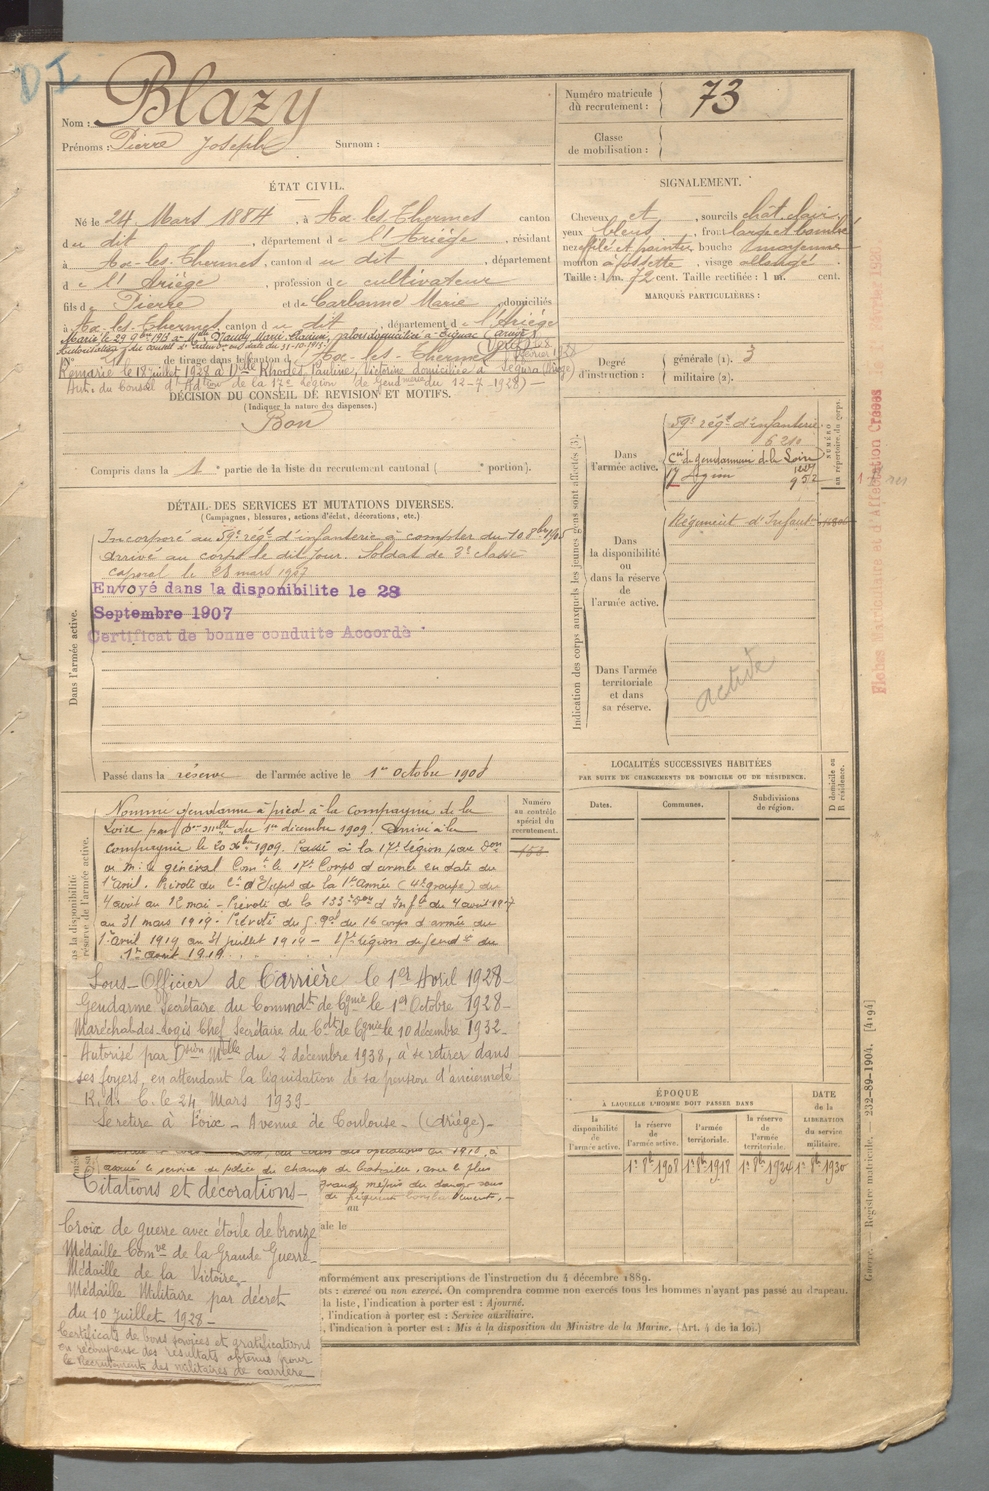 DI
Nom : Blazy
Prénoms : Pierre Joseph Surnom :
Numéro matricule du recrutement : 73
Classe de mobilisation :
ÉTAT CIVIL.
Né le 24 Mars 1884, à Ax-les-Thermes canton
du dit, département de l'Ariège, résidant
à Ax-les-Thermes, canton du dit, département
de l'Ariège, profession de cultivateur
fils de Pierre et de Carbonne Marie, domiciliés
à Ax-les-Thermes, canton du dit, département de l'Ariège
Marié le 29 9bre 1913 à Mlle
N° de tirage dans le canton d'Ax-les-Thermes
Remarié le 18 juillet 1928 à Dlle Rhodes Pauline, Victorine domiciliée à Ségura (Ariège)
Aut. du Conseil d'Adtion de la 17e Légion de Gendrie du 12-7-1928) —
DÉCISION DU CONSEIL DE REVISION ET MOTIFS.
(Indiquer la nature des dispenses.)
Bon
Compris dans la 1e partie de la liste du recrutement cantonal ( e portion).
SIGNALEMENT.
Cheveux et, sourcils chât. clair
yeux bleus, front large et bombé
nez effilé et pointu, bouche moyenne
menton à fossette, visage allongé
Taille : 1 m. 72 cent. Taille rectifiée : 1 m. cent.
MARQUES PARTICULIÈRES :
Degré d'instruction : générale (1). 3
militaire (2).
DÉTAIL DES SERVICES ET MUTATIONS DIVERSES.
(Campagnes, blessures, actions d'éclat, décorations, etc.)
Dans l'armée active.
Incorporé au 59e régt d'infanterie à compter du 10 8bre 1905
Arrivé au corps le dit jour. Soldat de 2e classe
caporal le 28 mars 1907
Envoyé dans la disponibilite le 28
Septembre 1907
Certificat de bonne conduite Accordé
Passé dans la réserve de l'armée active le 1er Octobre 1908
Indication des corps auxquels les jeunes gens sont affectés (3).
NUMÉRO au répertoire du corps.
Dans l'armée active.
59e régt d'infanterie
6210
Cie de gendarmerie de la Loire
17 légion 952
Dans la disponibilité ou dans la réserve de l'armée active.
Régiment d'Infant
Dans l'armée territoriale et dans sa réserve.
active
Fiches Matriculaire et d'Affectation Créées le Février 1920
LOCALITÉS SUCCESSIVES HABITÉES
PAR SUITE DE CHANGEMENTS DE DOMICILE OU DE RÉSIDENCE.
Dates. Communes. Subdivisions de région. D domicile ou R résidence.
Numéro au contrôle spécial du recrutement.
Nommé gendarme à pied à la compagnie de la
Loire par Don mlle du 1er décembre 1909. Arrivé à la
Compagnie le 20 Xbre 1909. Passé à la 17e légion par Don
de M. le général Comt le 17e Corps d'armée en date du
1er avril. Prévôté du d'Etapes de la 1e Armée (4e groupe) du
4 août au 12 mai - Prévôté de la 133e Don d'Inf. du 4 août 1917
au 31 mars 1919 - Prévôté du du 16 corps d'armée du
1er avril 1919 au 31 juillet 1919 - 17e légion de gend. du
1er août 1919.
Sous-Officier de Carrière le 1er Avril 1928-
Gendarme Secrétaire du Commdt de Cgnie le 1er Octobre 1928-
Maréchal-des-logis Chef, Secrétaire du Cdt de Cgnie le 10 décembre 1932-
Autorisé par Dsion Mlle du 2 décembre 1938, à se retirer dans
ses foyers, en attendant la liquidation de sa pension d'ancienneté
R. d. C. le 24 Mars 1939-
Se retire à Foix - Avenue de Toulouse - (Ariège) -
des opérations en 1918, a
assuré le service de police du champ de bataille, avec le plus
grand mépris du danger sous
de fréquents bombardements, -
Citations et décorations-
Croix de guerre avec étoile de bronze
Médaille Comve de la Grande Guerre-
Médaille de la Victoire-
Médaille Militaire par décret
du 10 juillet 1928 -
Certificats de bons services et gratifications
en récompense des résultats obtenus pour
le Recrutement des militaires de carrière-
ÉPOQUE
À LAQUELLE L'HOMME DOIT PASSER DANS
la disponibilité de l'armée active. la réserve de l'armée active. l'armée territoriale. la réserve de l'armée territoriale.
DATE de la LIBÉRATION du service militaire.
1er 8bre 1908 1er 8bre 1918 1er 8bre 1924 1er 8bre 1930
onformément aux prescriptions de l'instruction du 4 décembre 1889.
ots : exercé ou non exercé. On comprendra comme non exercés tous les hommes n'ayant pas passé au drapeau.
la liste, l'indication à porter est : Ajourné.
, l'indication à porter est : Service auxiliaire.
, l'indication à porter est : Mis à la disposition du Ministre de la Marine. (Art. 4 de la loi.)
Guerre. — Registre matricule. — 232-89-1904. [4194]